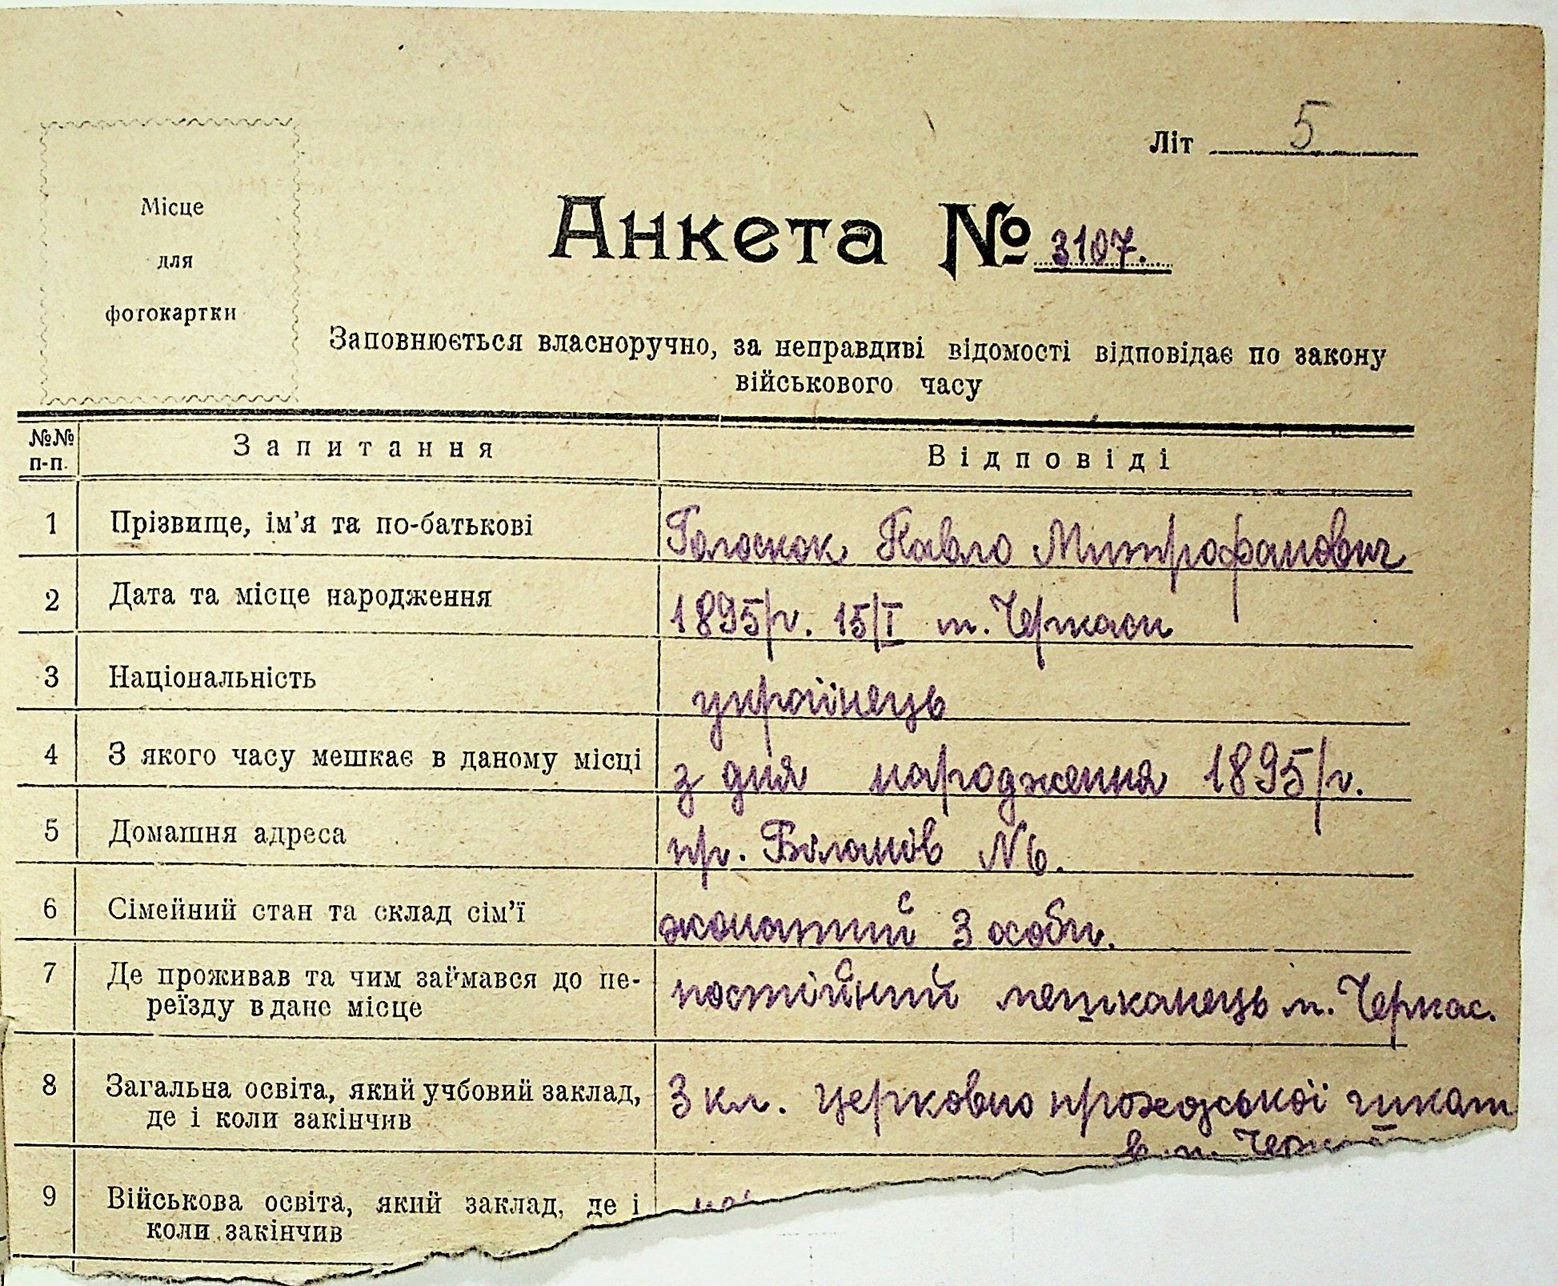 Літ 5
Місце
для
фотокартки
Анкета № 3107.
Заповнюється власноручно, за неправдиві відомості відповідає по закону
військового часу
№№ п-п.
Запитання
Відповіді
1 Прізвище, ім'я та по-батькові Голоскок Павло Митрофанович
2 Дата та місце народження 1895/р. 15/I м. Черкаси
3 Національність українець
4 З якого часу мешкає в даному місці з дня народження 1895/р.
5 Домашня адреса пр. Біланів №6.
6 Сімейний стан та склад сім'ї жонатий 3 особи.
7 Де проживав та чим займався до пе-
реїзду в дане місце постійний мешканець м. Черкас.
8 Загальна освіта, який учбовий заклад,
де і коли закінчив 3 кл. церковно
в м.
9 Військова освіта, який заклад, де і
коли закінчив